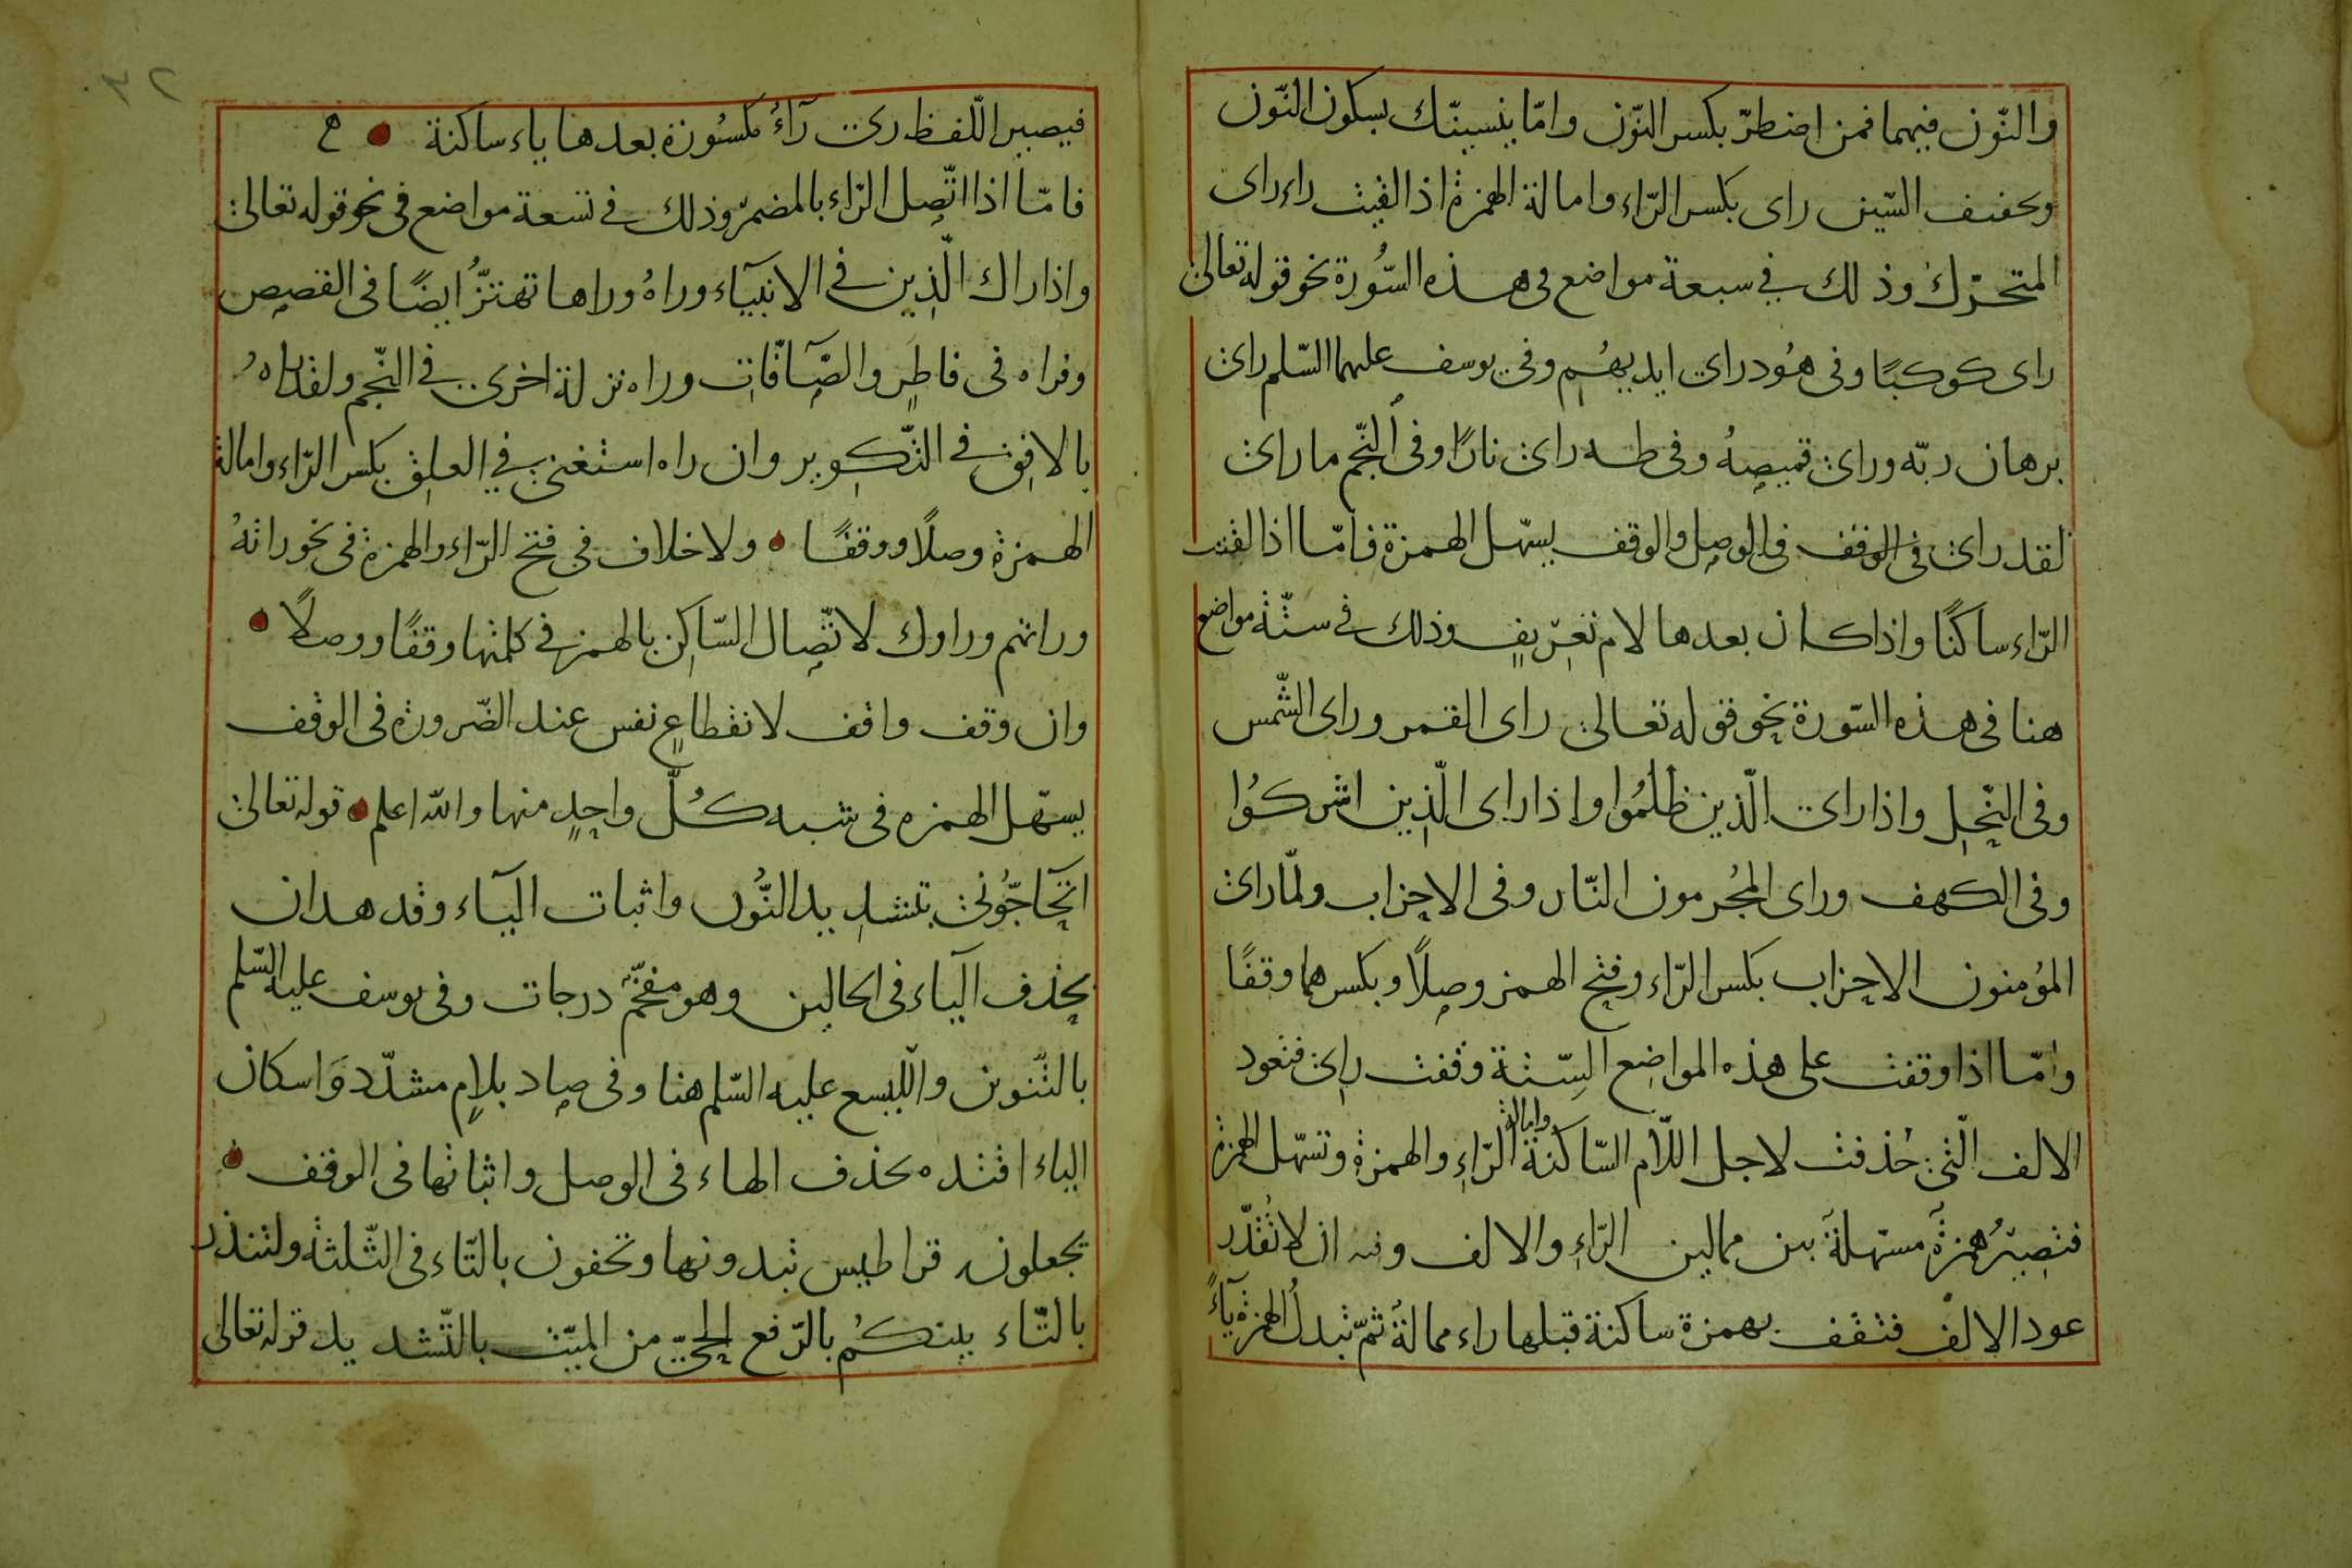 والنّون فيهما فمن اضطرّ بكسر النّون وامّا ينسينّك بسكون النّون
وتخفيف السّين راى بكسر الرّاء وامالة الهمزة اذا لقيت راء راى
المتحرّك وذلك في سبعة مواضع فى هذه السُّورة نحو قوله تعالى
راى كوكبًا وفى هُود راى ايديهُم وفى يوسف عليهما السّلم راى
برهان ربّه وراى قميصهُ وفى طه راى نارًا وفى النّجم ما راى
لقد راى فى الوقف فى الوصل والوقف يسهّل الهمزة فامّا اذا لقيت
الرّاء ساكنًا واذا كان بعدها لام تعريفٍ وذلك فى ستّة مواضع
هنا فى هذه السّورة نحو قوله تعالى راى القمر وراى الشّمس
وفى النّحل واذا راى الّذين ظلمُوا واذا راى الّذين اشركُوا
وفى الكهف وراى المجُرمون النّار وفى الاحزاب ولمّا راى
المؤمنون الاحزاب بكسر الرّاء وفتح الهمز وصلاً وبكسرهما وقفًا
وامّا اذا وقفت على هذه المواضع السّتة وقفت راى فتعود
الالف الّتى حُذفت لاجل اللّام السّاكنة وامالة الرّاءِ والهمزة وتسهّل الهمزة
فتصيرُ همزةً مسهلةً بين ممالين الرّاءِ والالف ان لا تُقدّر
عود الالف فتقف بهمزة ساكنة قبلها راء ممالة ثمّ تبدل الهمزة يآءً
فيصير اللّفظ رى رآءُ مكسُورة بعدها ياء ساكنة
فامّا اذا اتّصل الرّاء بالمضمر وذلك فى تسعة مواضع فى نحو قوله تعالى
واذا راك الّذين فى الانبيآء وراهُ وراها تهتزُّ ايضًا فى القصص
وفراه فى فاطرٍ والصّآفّات وراه نزلة اخرى فى النّجم ولقد راهُ
بالافق فى التّكوير وان راه استغنى في العلق بكسر الرّاء وامالة
الهمزة وصلًا ووقفًا ولا خلاف فى فتح الرّاء والهمزة فى نحو راتهُ
وراتهم وراوك لاتّصال السّاكن بالهمز فى كلمتها وقفًا ووصلًا
وان وقف واقف لانقطاعٍ نفس عند الضّرورة فى الوقف
يسهّل الهمزه فى شبه كُلّ واحدٍ منها والله اعلم قوله تعالى
اتحآجّونى بتشديد النُّون واثبات اليآء وقد هدان
بحذف اليآء فى الحالين وهو مفخّم درجات وفى يوسف عليه السّلم
بالتّنوين والليسع عليه السّلم هنا وفى صاد بلامٍ مشدّد وَاسكان
الياء اقتده بحذف الهاء فى الوصل واثباتها فى الوقف
تجعلونه قراطيس تبدونها وتخفون بالتّاء فى الثّلثة ولتنذر
بالتّاء بينكُم بالرّفع الحىّ من الميّت بالتّشديد قوله تعالى